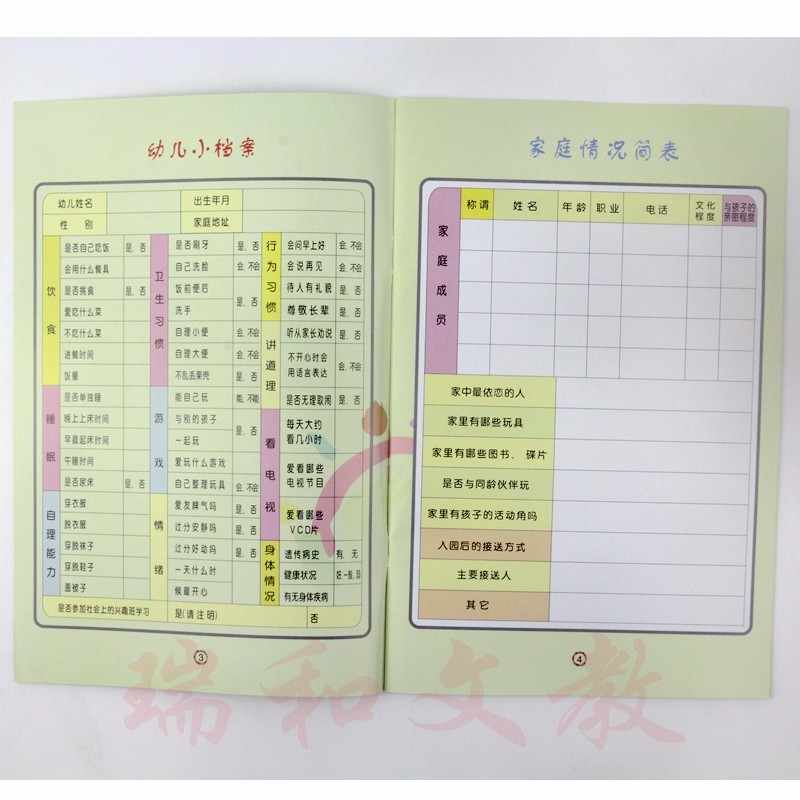 幼儿小档案
幼儿姓名 出生年月
性 别 家庭地址
饮食
是否自己吃饭 是、否
会用什么餐具
是否挑食 是、否
爱吃什么菜
不吃什么菜
进餐时间
饭量
睡眠
是否单独睡
晚上上床时间
早晨起床时间
午睡时间
是否尿床 是、否
自理能力
穿衣服
脱衣服
穿脱袜子
穿脱鞋子
盖被子
卫生习惯
是否刷牙 是、否
自己洗脸 会、不会
饭前便后
洗手 是、否
自理小便 会、不会
自理大便 会、不会
不乱丢果壳 是、否
游戏
能自己玩 能、不能
与别的孩子
一起玩 是、否
爱玩什么游戏
自己整理玩具 会、不会
情绪
爱发脾气吗 是、否
过分安静吗 是、否
过分好动吗 是、否
一天什么时
候最开心
行为习惯
会问早上好 会、不会
会说再见 会、不会
待人有礼貌 是、否
尊敬长辈 是、否
讲道理
听从家长劝说 是、否
不开心时会
用语言表达 会、不会
是否无理取闹 是、否
看电视
每天大约
看几小时
爱看哪些
电视节目
爱看哪些
VCD片
身体情况
遗传病史 有、无
健康状况 好、一般、弱
有无身体疾病
是否参加社会上的兴趣班学习 是(请注明) 否
3
家庭情况简表
家庭成员
称谓 姓名 年龄 职业 电话 文化程度 与孩子的亲密程度
家中最依恋的人
家里有哪些玩具
家里有哪些图书、碟片
是否与同龄伙伴玩
家里有孩子的活动角吗
入园后的接送方式
主要接送人
其它
4
瑞和文教